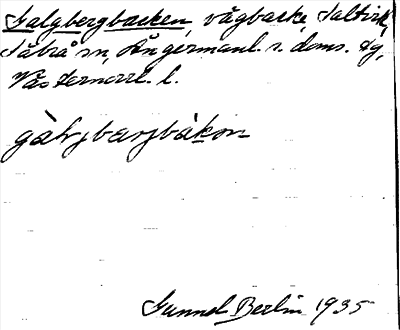 Galgbergbacken, vägbacke, Saltvik,
Säbrå sn, Ångermanl. s. doms. tg,
Västernorrl. l.
gàlɥbærjbàkon
Gunnel Berlin 1935